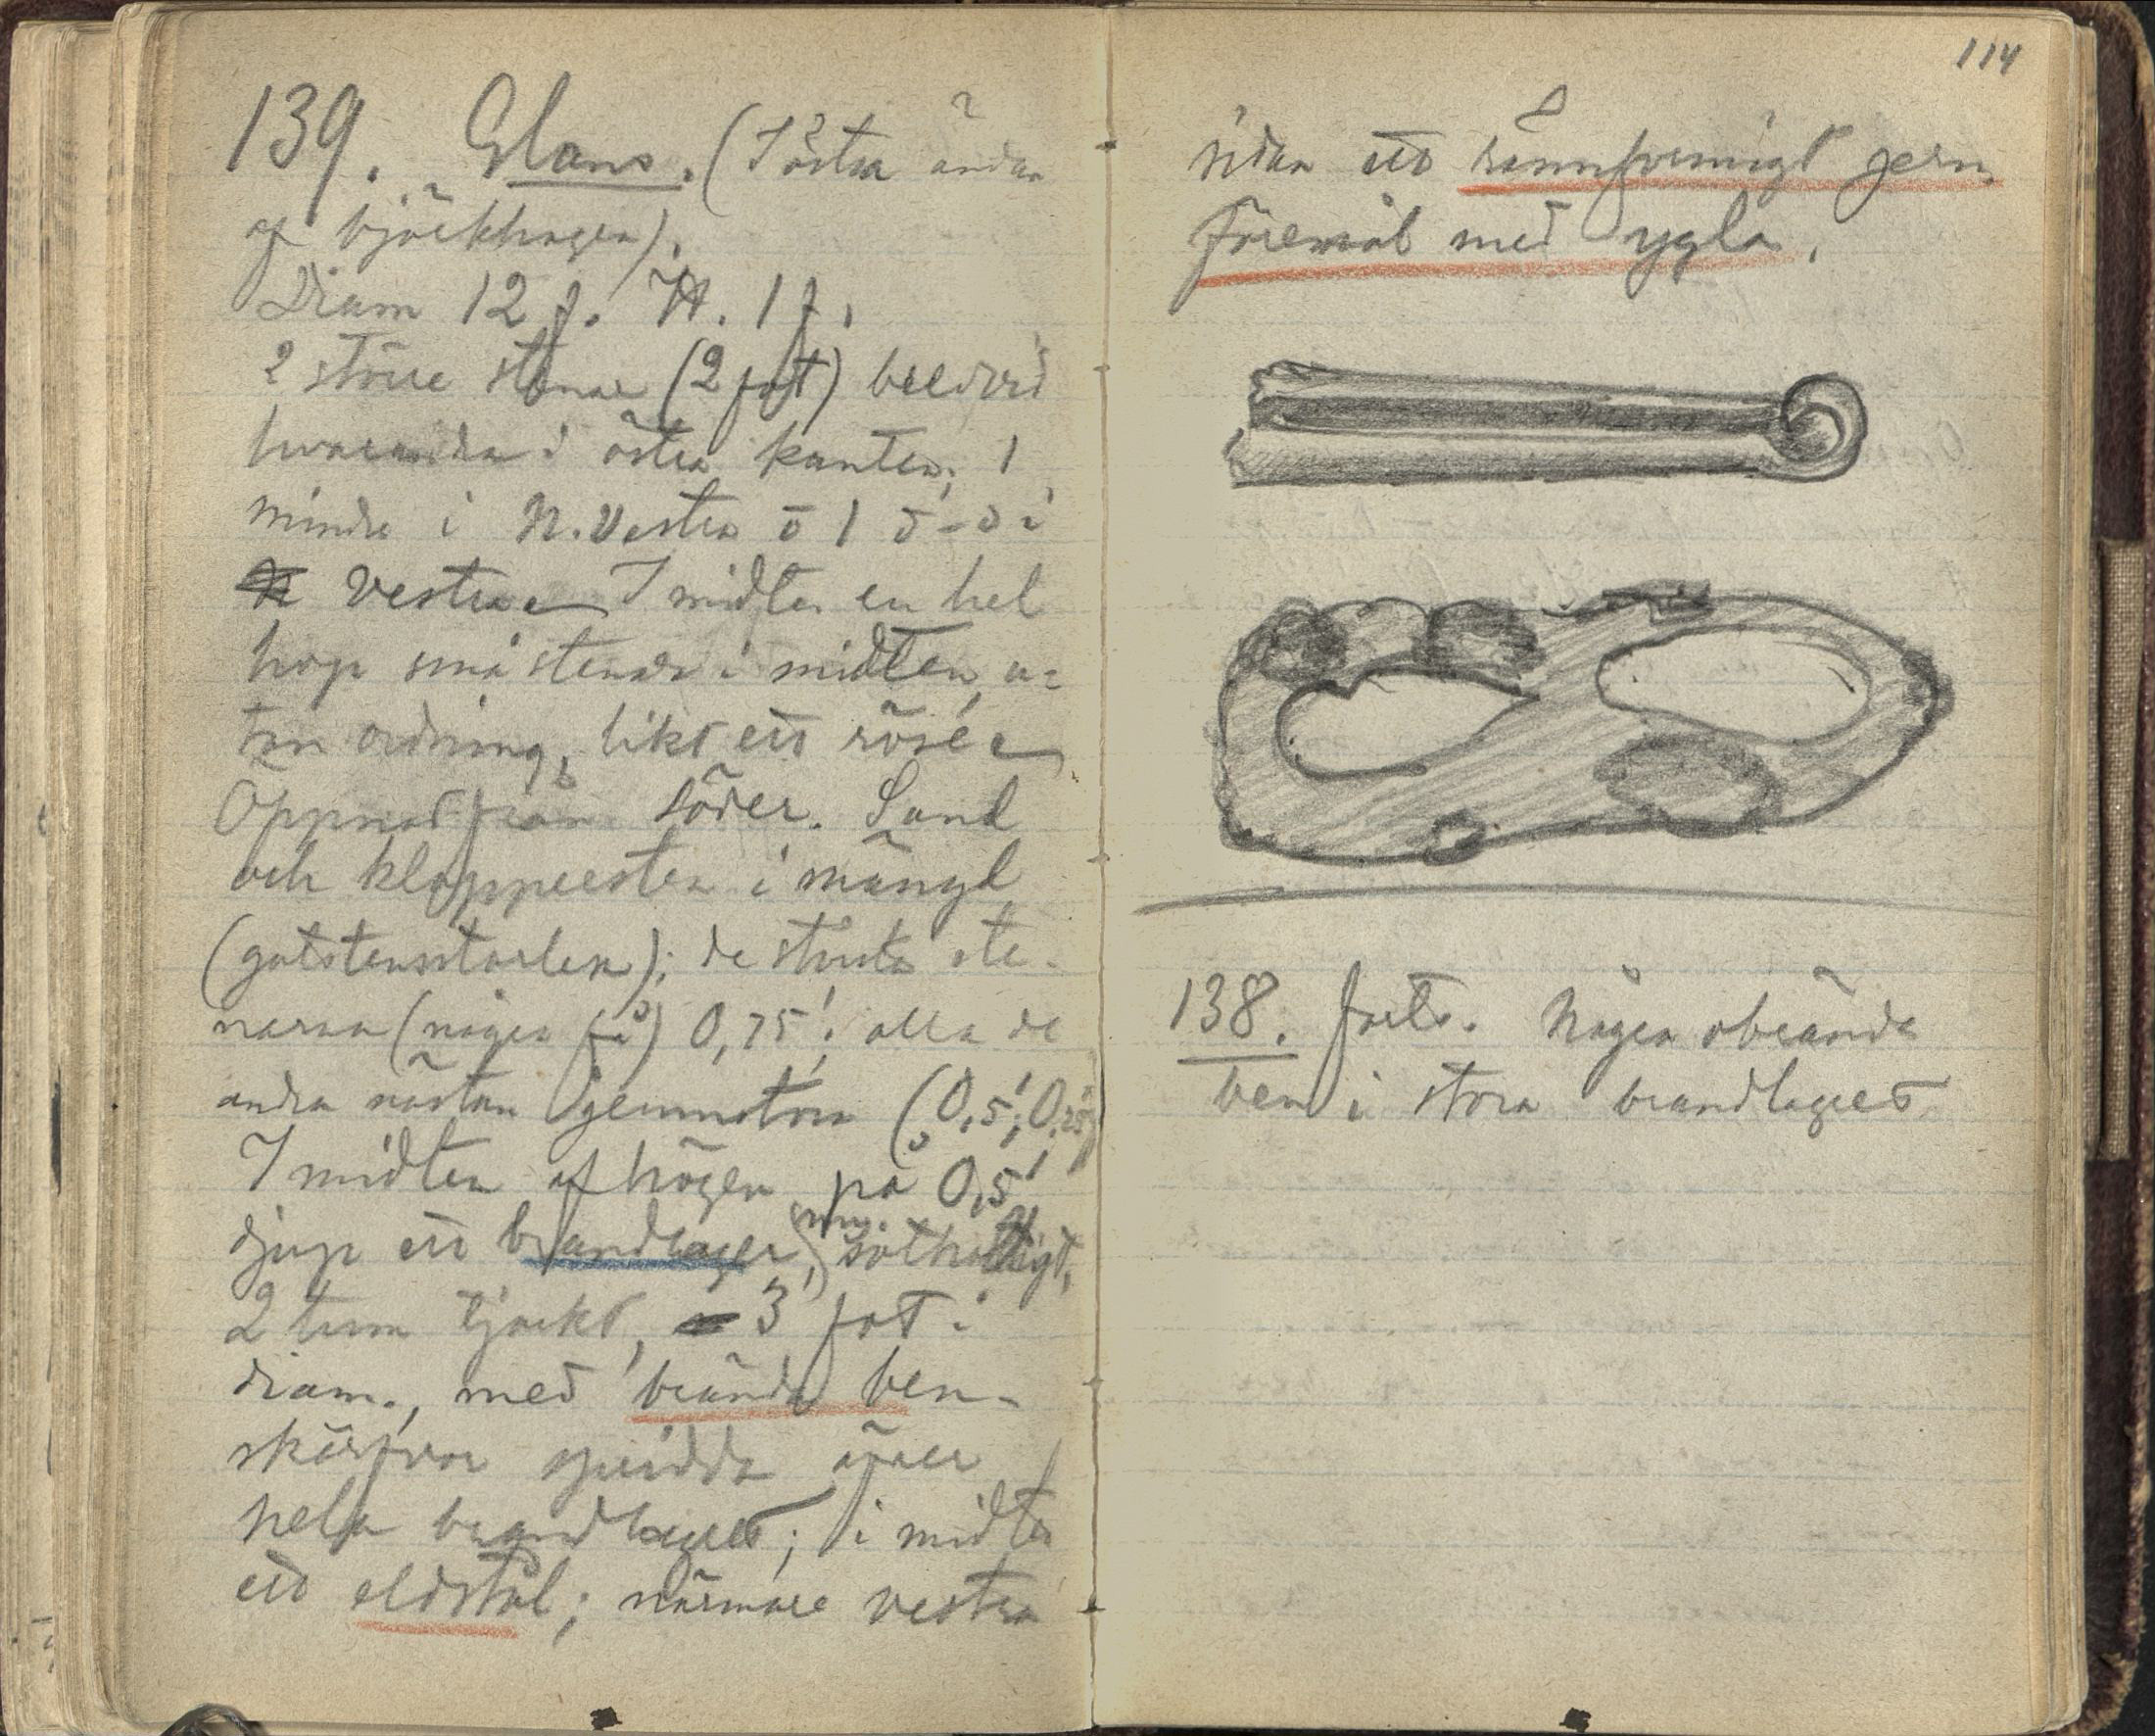 139. Glans. (I östra ändan
af björkhagen).
Diam 12 f. H. 1 f.
2 större stenar (2 fot) bredvid
hvarandra i östra kanten; 1
mindre i N. Vestra o 1 d-o i
vestra. I midten en hel
hop små stenar i midten, u-
tan ordning, likt ett röse.
Öppnad från söder. Sand
och klappersten i mängd
(gatstensstorlek); de största ste-
narna (några få) 0,75'; alla de
andra nästan jemnstora (0,5'; 0,25')
I midten af högen på 0,5'
djup ett brandlager, sothaltigt,
2 tum tjockt, 3 fot i
diam., med brända ben-
skärfvor spridda öfver
hela brandlagret; i midten
ett eldstål; närmare vestra
114
sidan ett rännformigt jern
föremål med ögla.
138. forts. Några obrända
ben i stora brandlagret